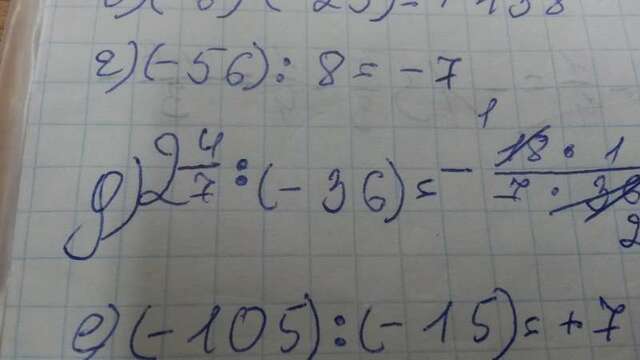 г) (-56) : 8 = -7
д) 2 4/7 : (-36) = - 18 · 1 / 7 · 36
1
2
е) (-105) : (-15) = +7